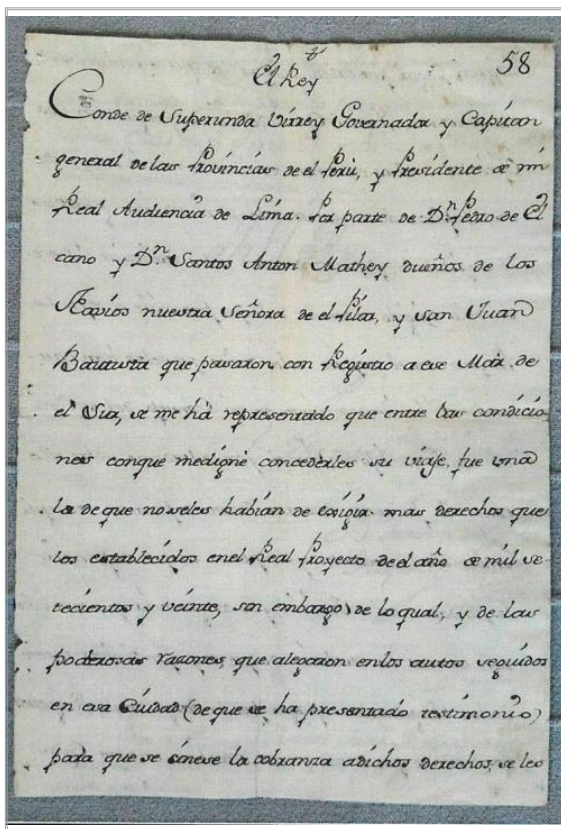 58
El Rey
Conde de Superunda Virrey Governador y Capitan
general de las Provincias de el Perù, y Presidente de mi
Real Audiencia de Lima. Por parte de Dn. Pedro de El
cano y Dn. Santos Anton Mathey dueños de los
Navios nuestra Señora de el Pilar, y san Juan
Bautista que pasaron con Registro a ese Mar de
el Sur, se me hà representado que entre las condicio-
nes conque medignè concederles su viaje, fue una
la deque noseles habian de exigir mas derechos que
los establecidos enel Real Proyecto deel año de mil se-
tecientos y veinte, sin embargo de lo qual, y de las
poderosas razones, que alegaron enlos autos seguidos
en esa Ciudad (de que se ha presentado testimonio)
para que se ciñese la cobranza adichos derechos, se les